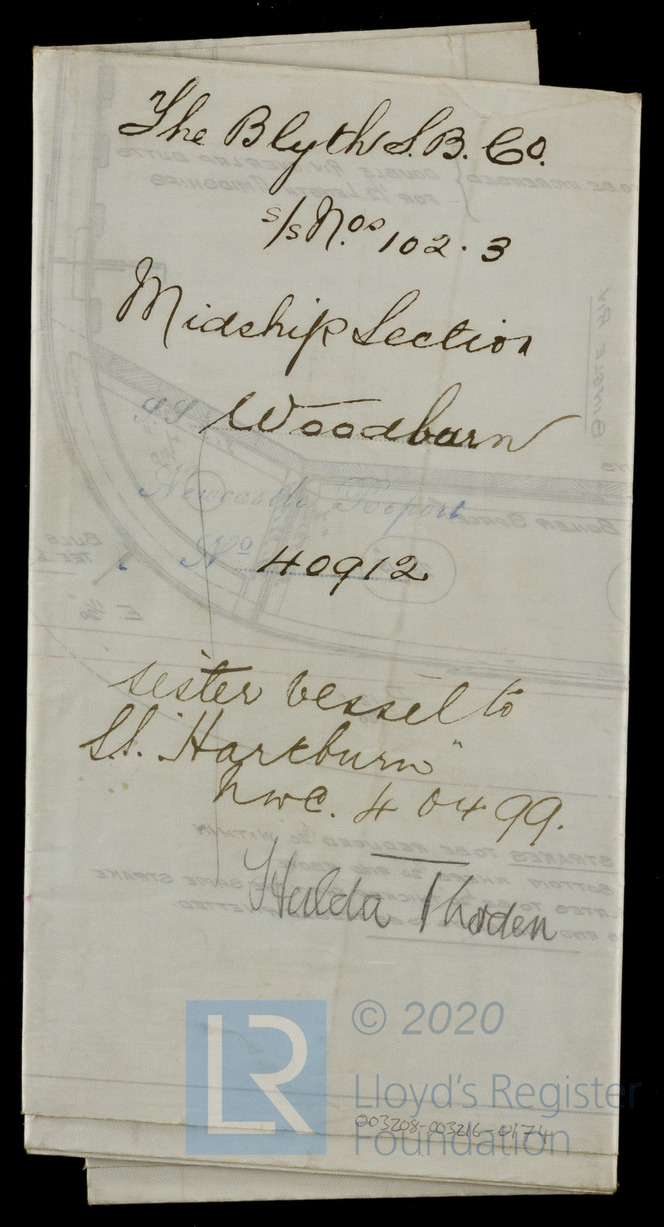 The Blyth S.B. Co.
s/s Nos 102.3
Midship Section
S.S. Woodburn
Newcastle Report
No 40912
sister vessel to
S.S. "Hartburn"
Nwc. 40499.
Hulda Thorden
LR
© 2020
Lloyd's Register
Foundation
003208-003216-0174